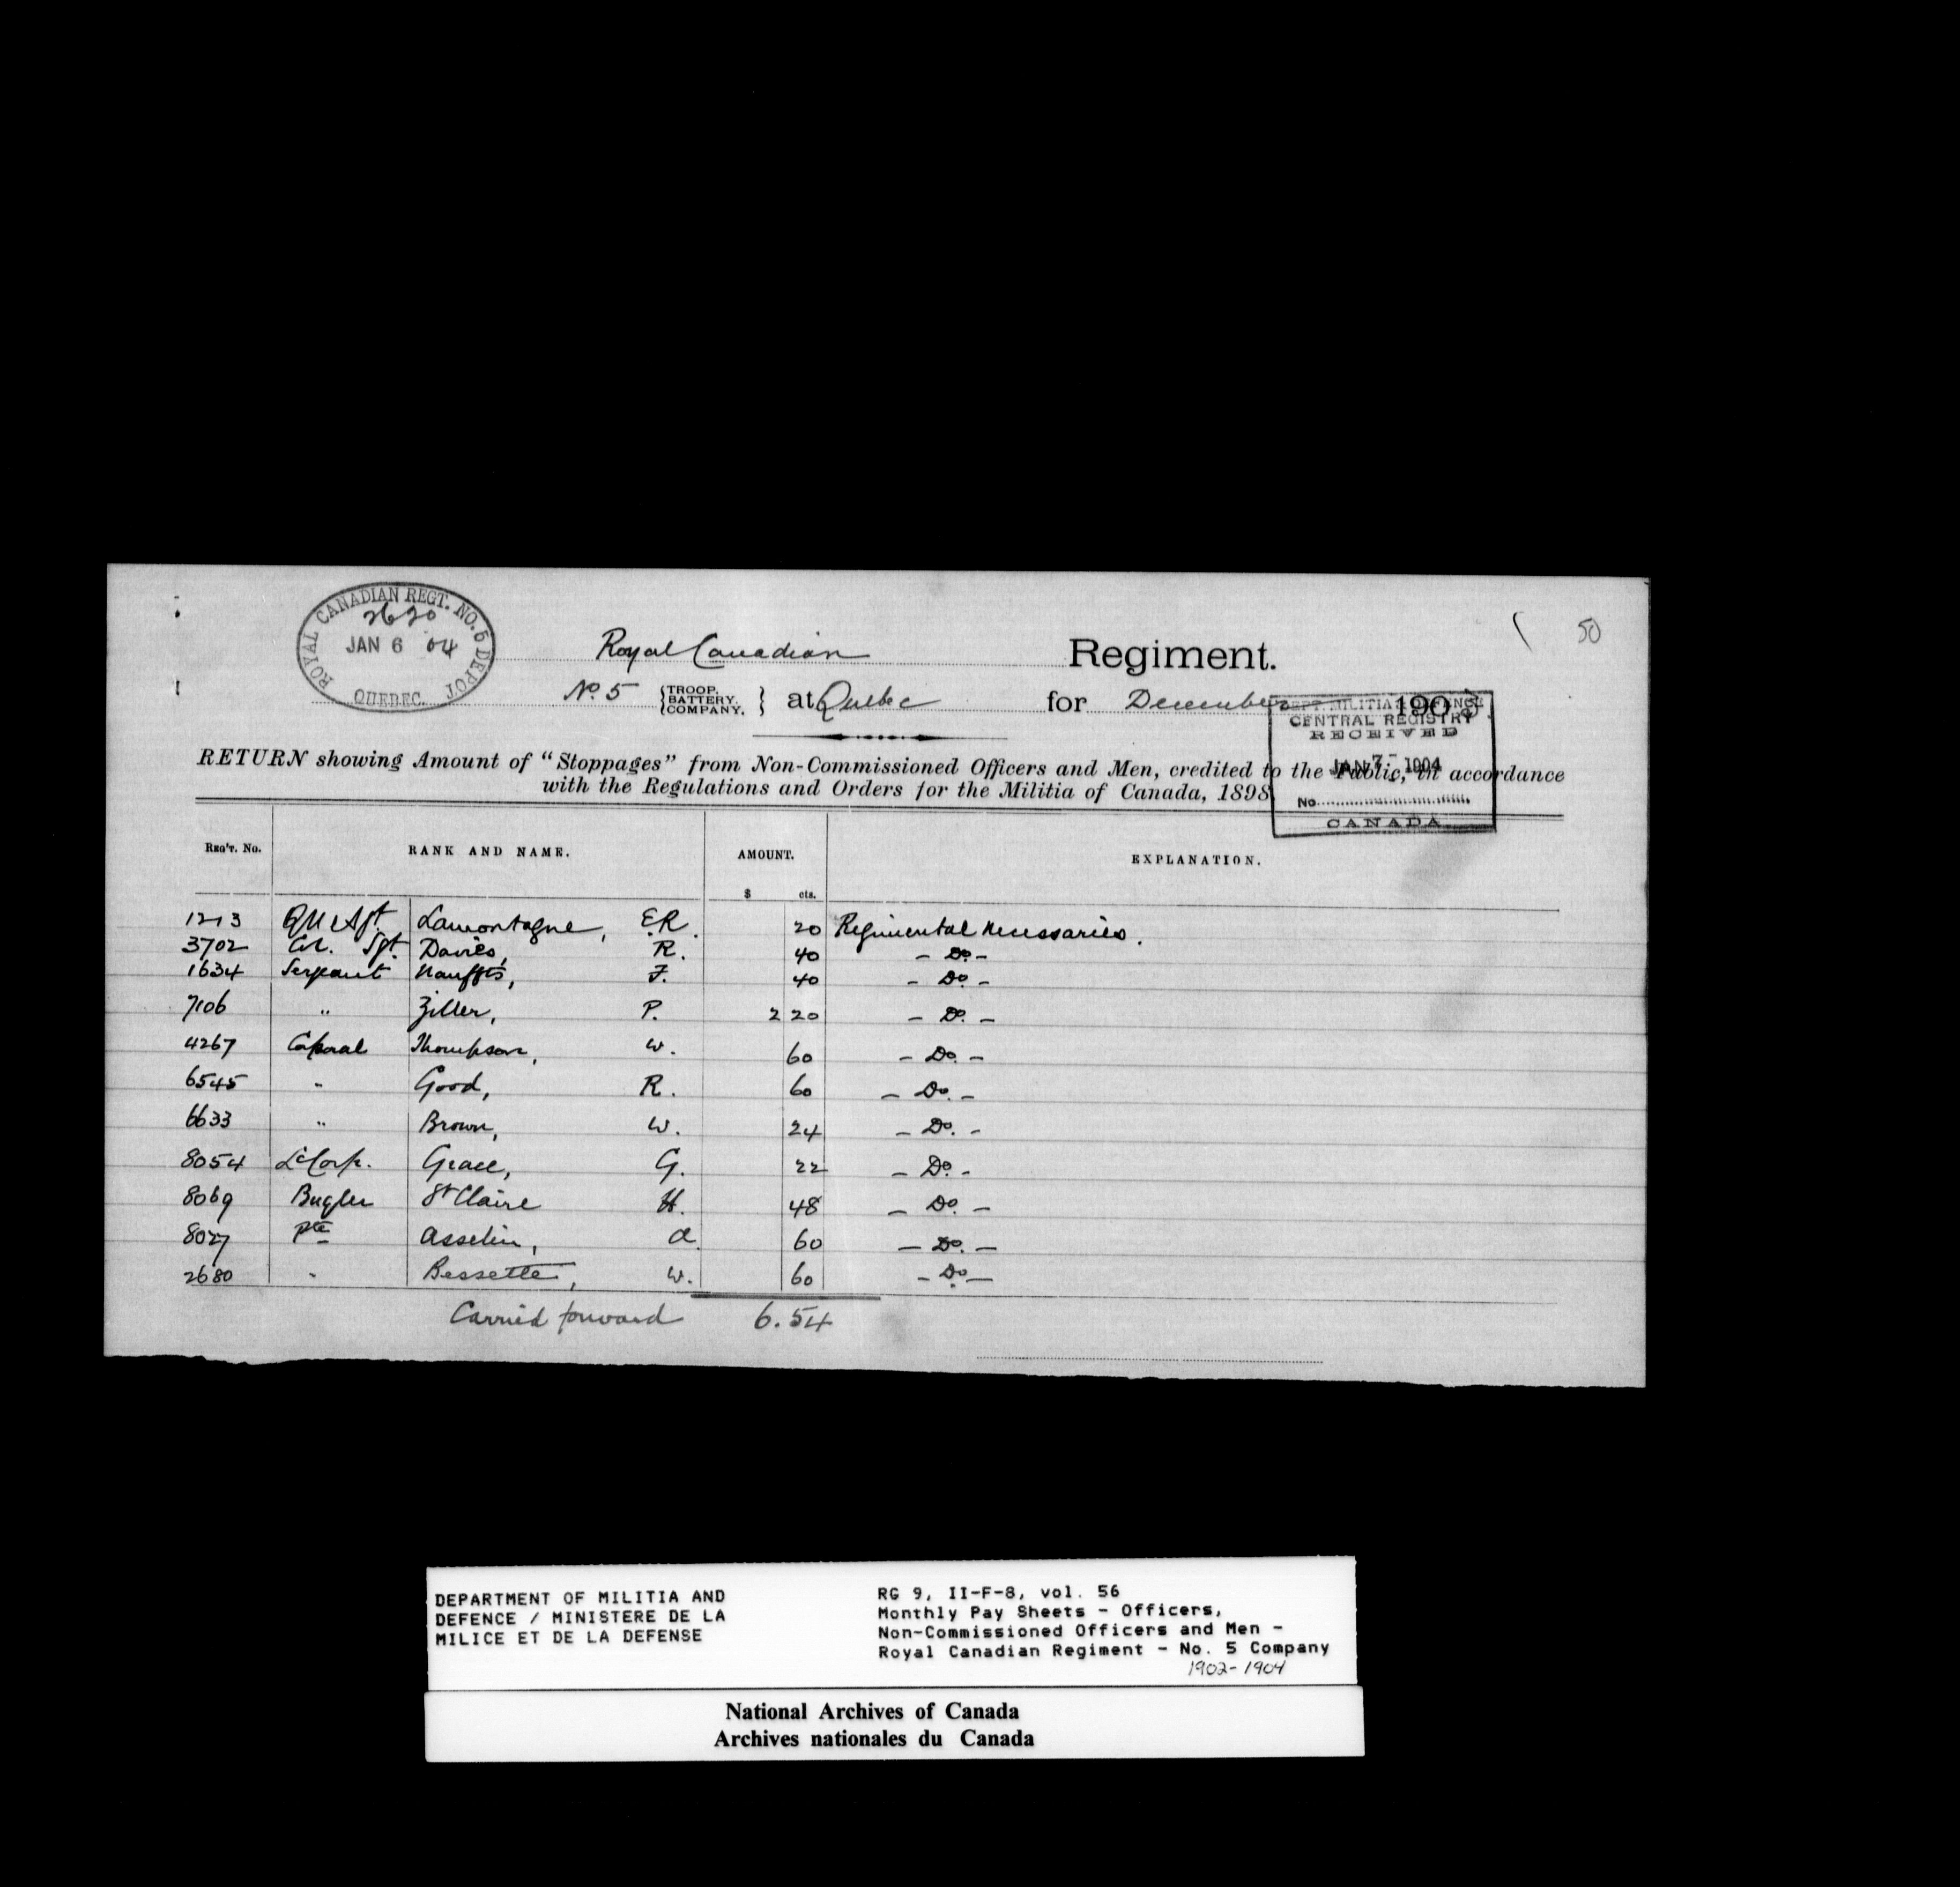 50
ROYAL CANADIAN REGT. NO. 5 DEPOT
2620
JAN 6 04
QUEBEC.
Royal Canadian Regiment.
No. 5 {TROOP. BATTERY. COMPANY.} at Quebec for December 1903.
DEPT. MILITIA & DEFENCE
CENTRAL REGISTRY
RECEIVED
JAN 7- 1904
No
CANADA
RETURN showing Amount of "Stoppages" from Non-Commissioned Officers and Men, credited to the Public, in accordance
with the Regulations and Orders for the Militia of Canada, 1898
REG'T. No. RANK AND NAME. AMOUNT. EXPLANATION.
$ cts.
1213 QM Sgt. Lamontagne, E.R. 20 Regimental necessaries.
3702 Col. Sgt. Davies, R. 40 - Do -
1634 Sergeant Nauffts, F. 40 - Do -
7106 " Ziller, P. 2 20 - Do. -
4267 Corporal Thompson, W. 60 - Do. -
6545 " Good, R. 60 - Do. -
6633 " Brown, W. 24 - Do. -
8054 L'Corp. Grace, G. 22 - Do. -
8069 Bugler St Claire H. 48 - Do. -
8027 Pte Asselin, A. 60 - Do. -
2680 " Bessette, W. 60 - Do -
Carried forward 6.54
DEPARTMENT OF MILITIA AND
DEFENCE / MINISTERE DE LA
MILICE ET DE LA DEFENSE
RG 9, II-F-8, vol. 56
Monthly Pay Sheets - Officers,
Non-Commissioned Officers and Men -
Royal Canadian Regiment - No. 5 Company
1902-1904
National Archives of Canada
Archives nationales du Canada